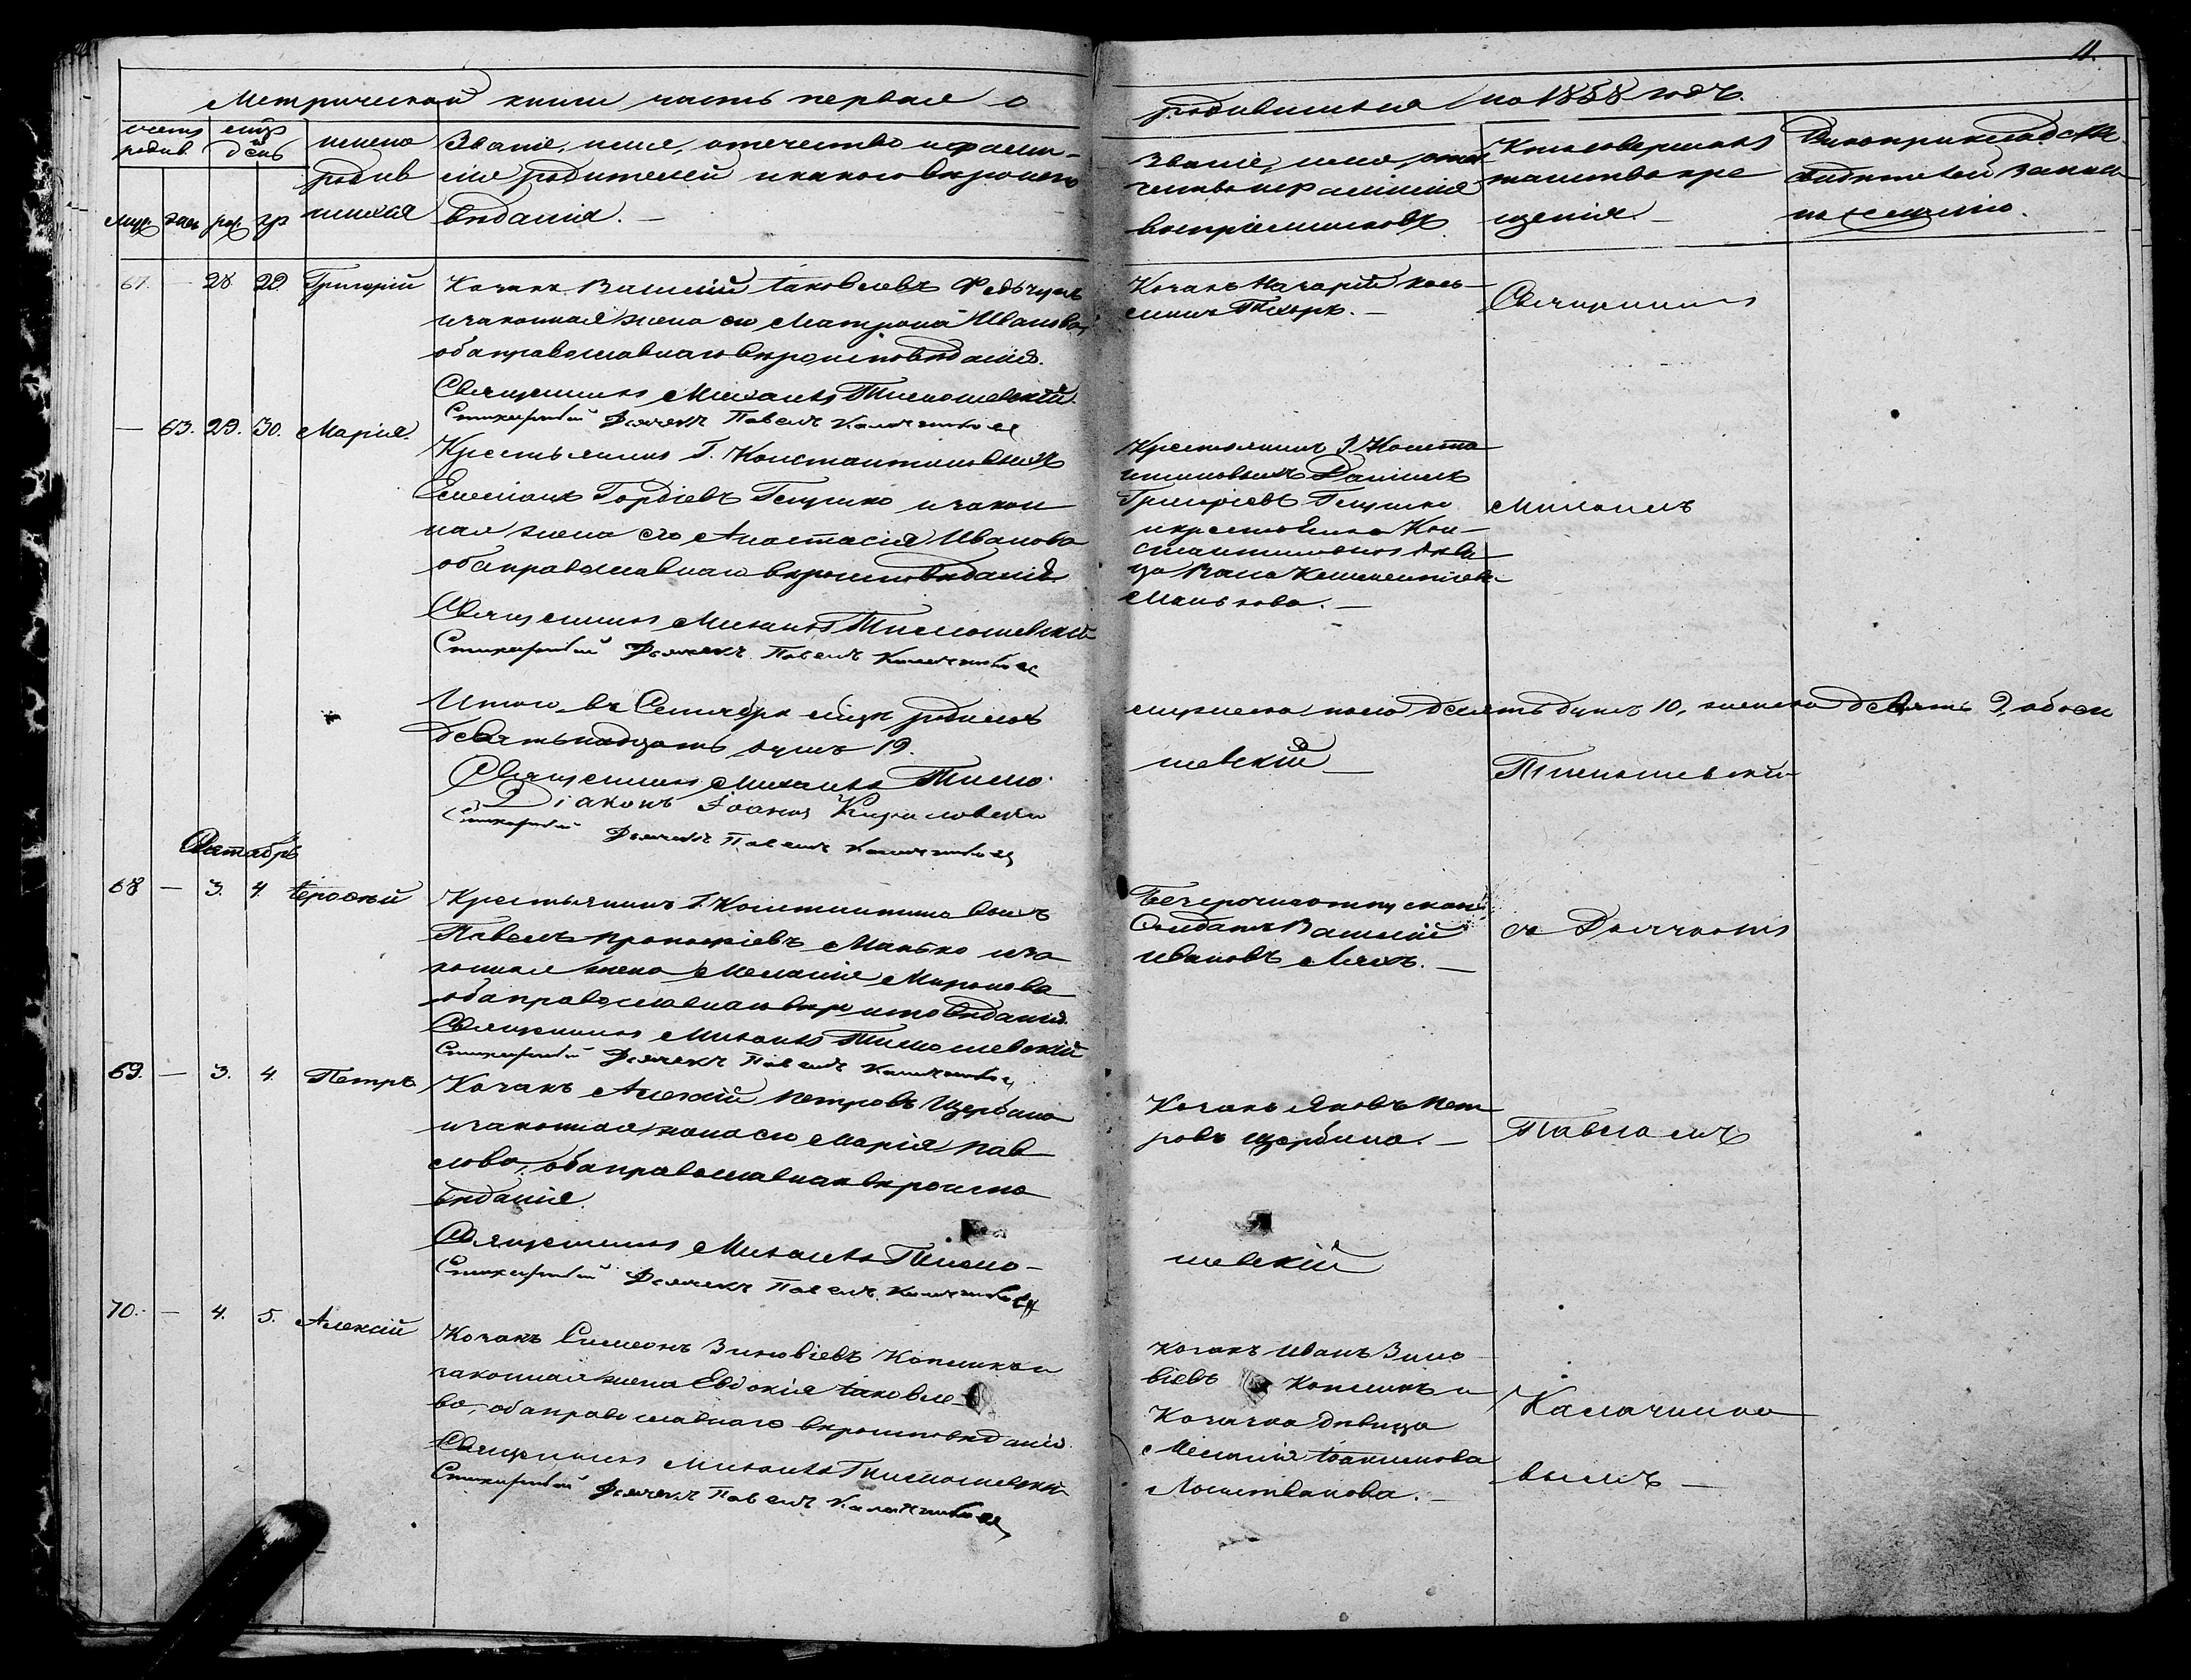 11.
Метрической книги часть первая о
родившихся на 1858 годъ.
счетъ родив.
мцъ и день
имена родив шихся
Званіе, имя, отечество и фами-
лія родителей и какого вѣроиспо
вѣданія. —
муж. жен. рож. кр
Званіе, имя, оте
чество и фамилия
воспріемниковъ
Кто совершалъ
таинство кре
щенія. —
Рукоприкладство
свидѣтелей записи
по желанію.
67. — 28 29. Григорій
Козакъ Василій Іаковлевъ
и законная жена его Матрона Иванова,
оба православнаго вѣроисповѣданія.
Священникъ Михаилъ Тимошевскій.
Стихарный Дьячекъ Павелъ
Козакъ Назарій Кось-
Священникъ
— 63. 29. 30. Марія.
Крестьянинъ Г. Константиновыхъ
Емеліанъ Гордіевъ Гепушко и закон
ная жена его Анастасія Иванова
оба православнаго вѣроисповѣданія
Священникъ Михаилъ Тимошевскій
Стихарный Дьячекъ Павелъ
Крестьянинъ Г. Конста
нтиновыхъ Даніилъ
Григоріевъ Гепушко
и крестьянка Кон-
стантиновыхъ дѣви
ца
Манькова. —
Михаилъ
Итого въ Сентябрѣ мцѣ родилось
мужеска пола десять душъ 10, женска девять 9, обоего
девятьнадцать душъ 19.
Священникъ Михаилъ Тимо
шевскій —
Тимошевскій
Діаконъ Іоаннъ Кириловскій
Стихарный Дьячекъ Павелъ
Октябрь
68 — 3. 4. Іероѳей
Крестьянинъ Г. Константиновыхъ
Павелъ Прокопіевъ Манько и за
конная жена Меланія Миронова
оба православнаго вѣроисповѣданія.
Священникъ Михаилъ Тимошевскій
Стихарный Дьячекъ Павелъ
Безсрочноотпускной
Солдатъ Василій
Ивановъ Ляхъ. —
съ Дьячкомъ
69. — 3. 4. Петръ
Козакъ Алексій Петровъ Щербина
и законная жена его Марія Пав
лова, оба православнаго вѣроиспо
вѣданія.
Священникъ Михаилъ Тимо-
шевскій
Стихарный Дьячекъ Павелъ
Козакъ Яковъ Пет
ровъ Щербина. —
Павломъ
70. — 4. 5. Алексій
Козакъ Симеонъ Зиновіевъ и
законная жена Евдокія Іаковле-
ва, оба православнаго вѣроисповѣданія.
Священникъ Михаилъ Тимошевскій
Стихарный Дьячекъ Павелъ
Козакъ Иванъ Зино
віевъ и
Козачка дѣвица
Меланія Іоакимова
Калачнико
вымъ —